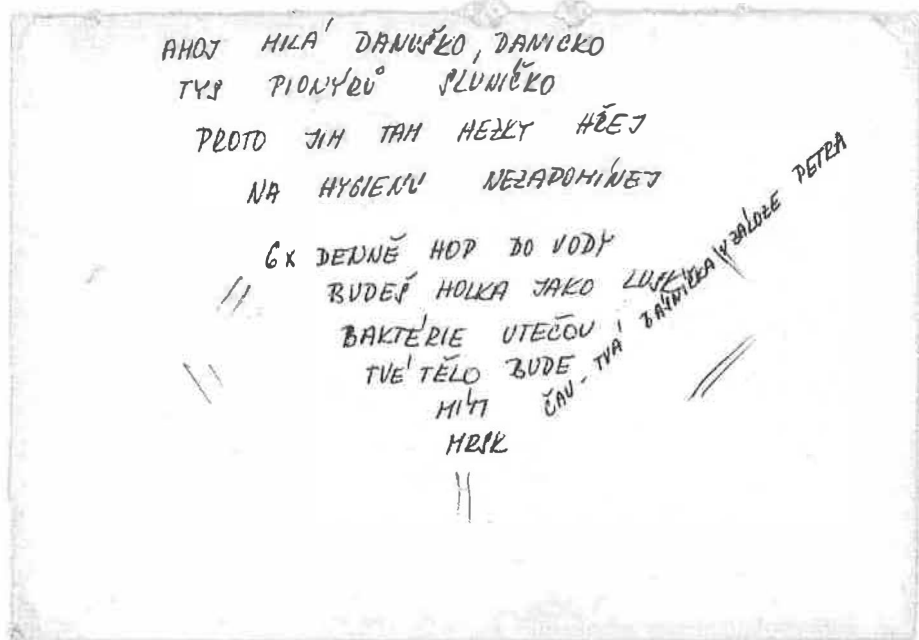 AHOJ MILÁ DANUŠKO, DANICKO
TYS PIONÝRŮ SLUNIČKO
PROTO JIM TAM HEZKY HŘEJ
NA HYGIENU NEZAPOMÍNEJ
6x DENNĚ HOP DO VODY
BUDEŠ HOLKA JAKO
BAKTÉRIE UTEČOU
TVÉ TĚLO BUDE
MÍTI
MRSK
ČAU - TVÁ BÁSNIČKA V ZÁLOZE PETRA